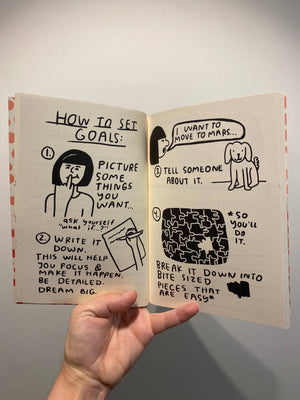 HOW TO SET
GOALS:
1.
PICTURE
SOME
THINGS
YOU
WANT...
ask yourself
"what if...?"
2. WRITE IT
DOWN.
THIS WILL HELP
YOU FOCUS &
MAKE IT HAPPEN.
BE DETAILED.
DREAM BIG.
I WANT TO
MOVE TO MARS...
3. TELL SOMEONE
ABOUT IT.
4.
*SO
YOU'LL
DO
IT.
BREAK IT DOWN INTO
BITE SIZED
PIECES THAT
ARE EASY*